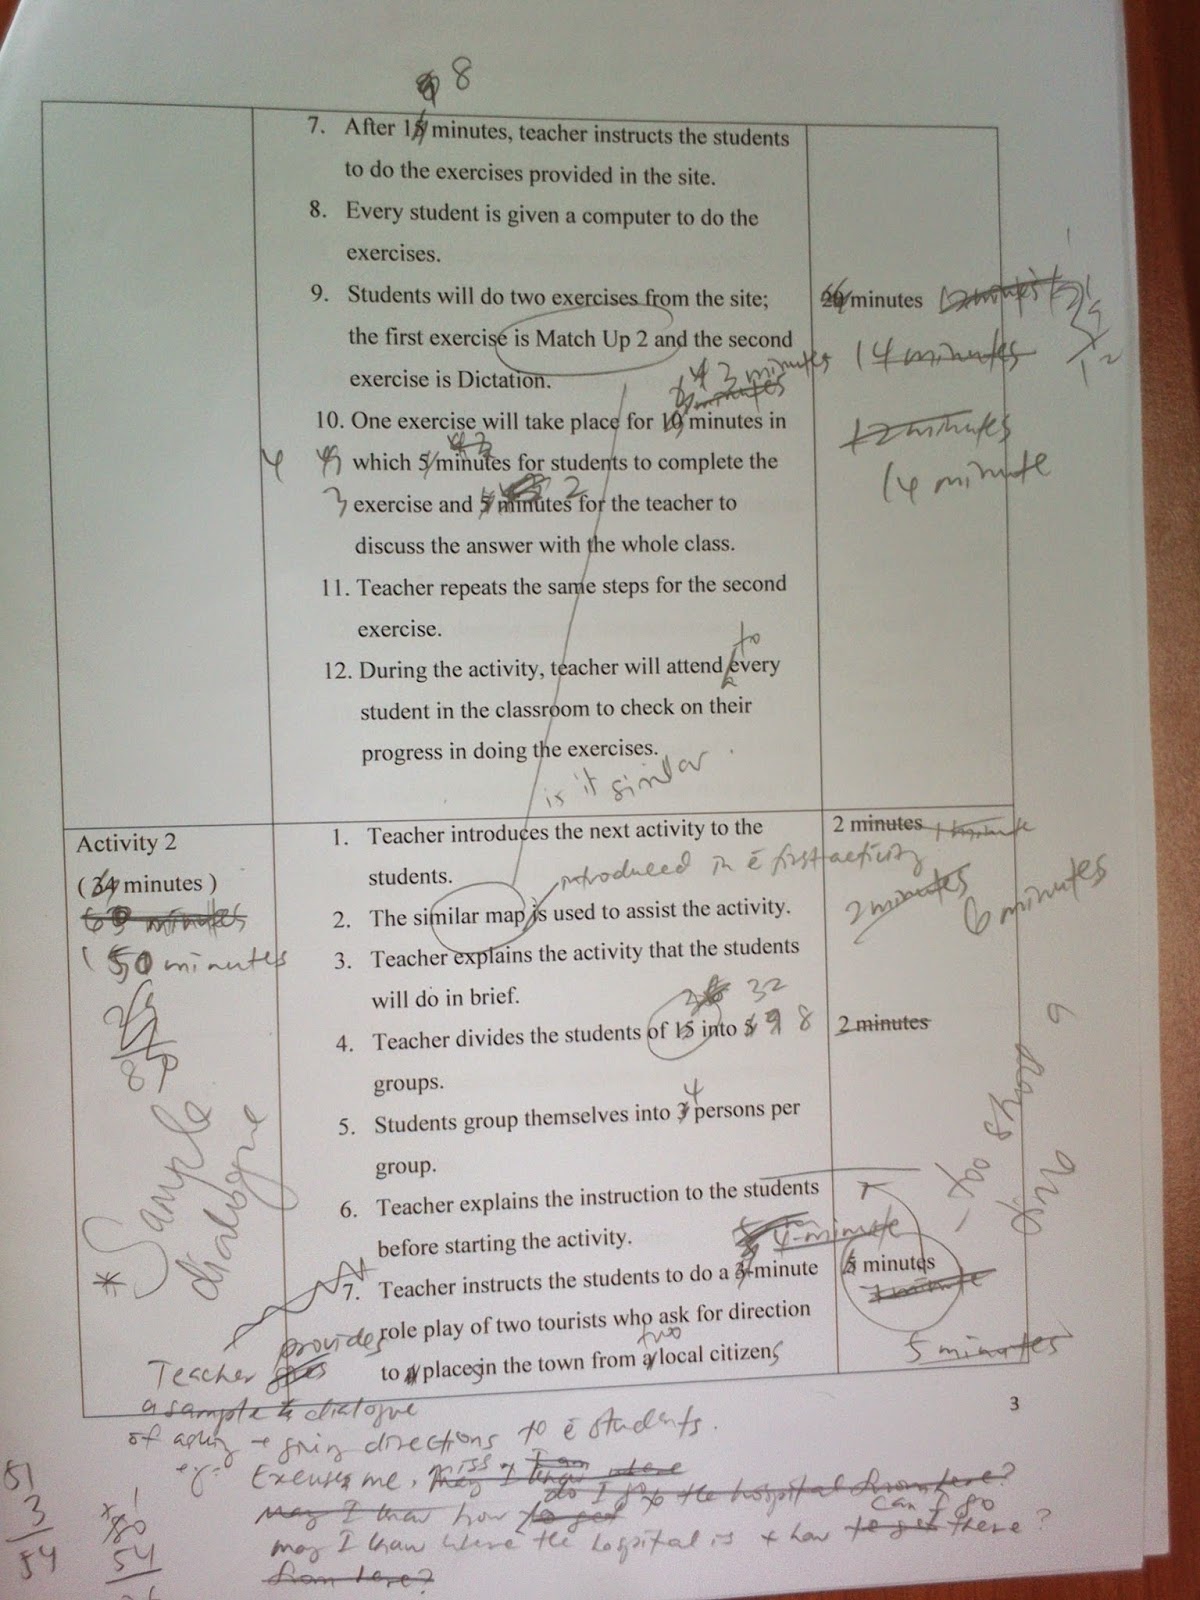 8
7. After 15 minutes, teacher instructs the students
to do the exercises provided in the site.
8. Every student is given a computer to do the
exercises.
9. Students will do two exercises from the site;
the first exercise is Match Up 2 and the second
exercise is Dictation.
minutes
14 minutes
12 minutes
14 minute
3 minutes
minutes
10. One exercise will take place for 10 minutes in
4
which 5 minutes for students to complete the
3 exercise and 5 minutes for the teacher to
2
discuss the answer with the whole class.
11. Teacher repeats the same steps for the second
exercise.
to
12. During the activity, teacher will attend every
student in the classroom to check on their
progress in doing the exercises.
is it similar
Activity 2
( 34 minutes )
minutes
50 minutes
1. Teacher introduces the next activity to the
students.
2 minutes 1 minute
introduced in ē first activity
2 minutes
6 minutes
2. The similar map is used to assist the activity.
3. Teacher explains the activity that the students
will do in brief.
32
4. Teacher divides the students of 15 into 5 9 8
groups.
2 minutes
4
5. Students group themselves into 3 persons per
group.
6. Teacher explains the instruction to the students
before starting the activity.
4-minute
7. Teacher instructs the students to do a 3-minute
role play of two tourists who ask for direction
two
to a places in the town from a local citizens
minutes
1 minute
5 minutes
* Sample
dialogue
3
Teacher gives provides
a sample dialogue
of asking + giving directions to ē students.
eg: Excuse me, miss
do I go to the hospital from here?
may I know how to get
can I go
may I know where the hospital is + how to get there?
from here?
51
3
54
80
54